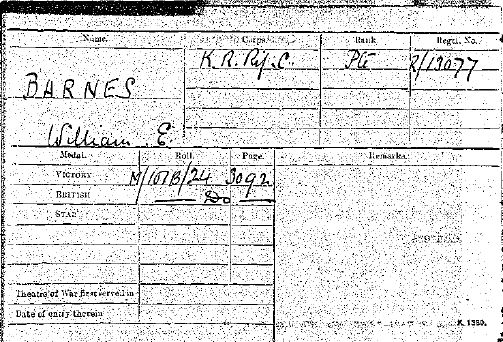 Name. Corps. Rank. Regtl. No.
BARNES K. R. Rif. C. Pte R/19077
William E.
Medal. Roll. Page. Remarks.
VICTORY M/101B/24 3092
BRITISH — Do —
STAR
Theatre of War first served in
Date of entry therein
K. 1380.